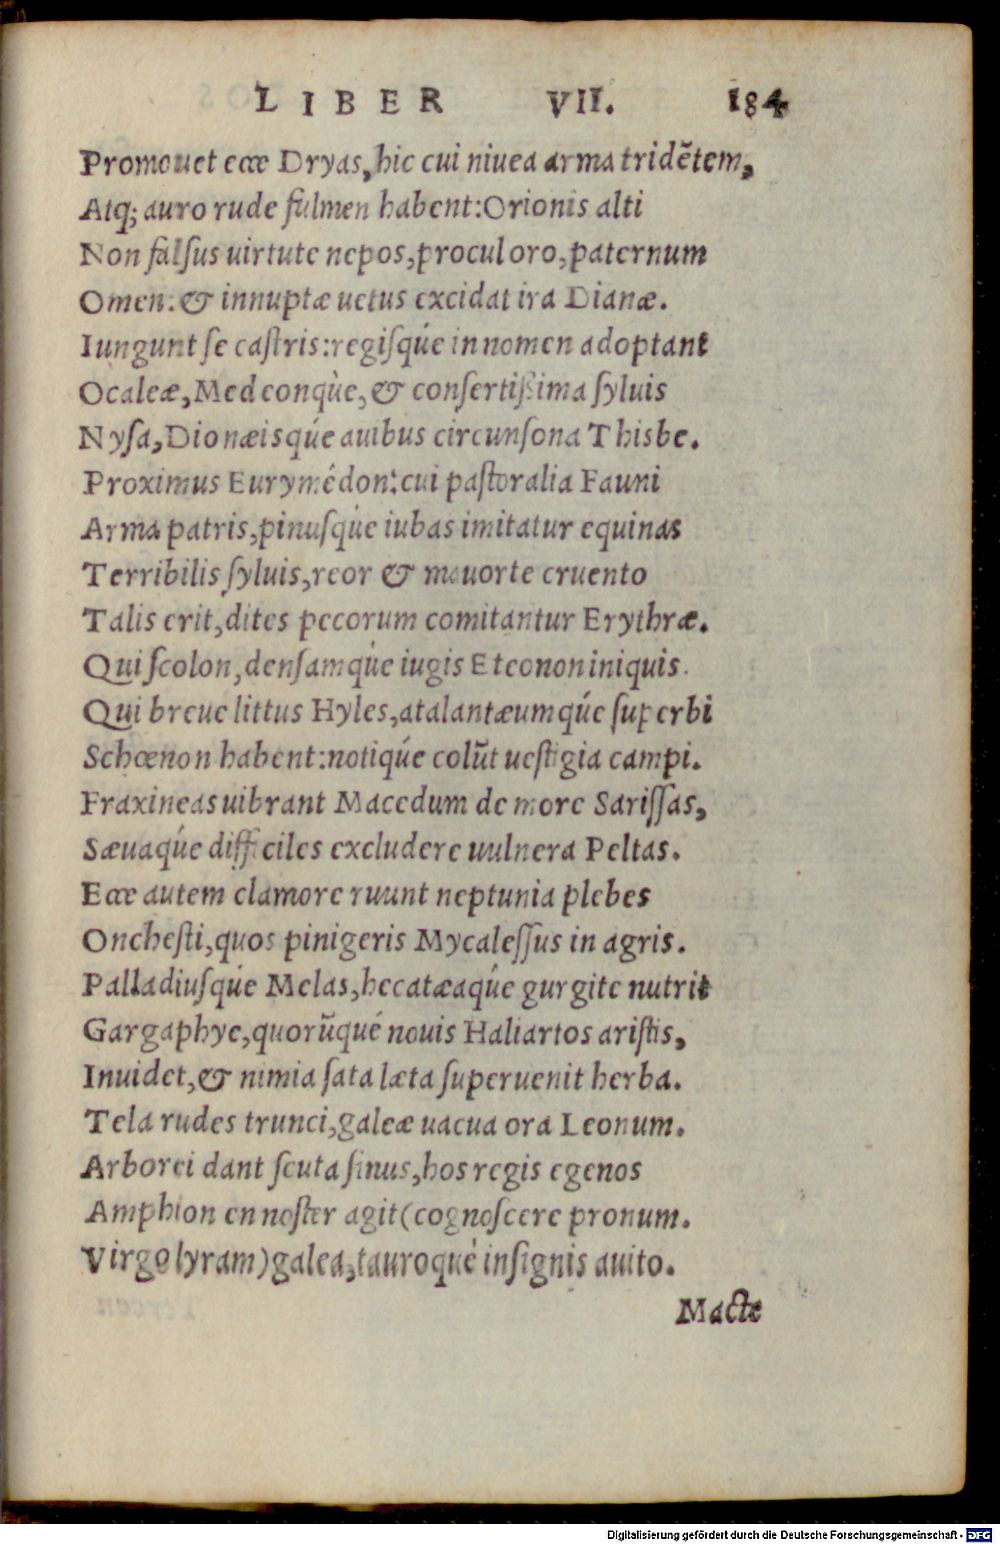 LIBER VII. 184
Promouet ecce Dryas, hic cui niuea arma tridẽtem,
Atq; auro rude fulmen habent: Orionis alti
Non falsus uirtute nepos, procul oro, paternum
Omen: & innuptæ uetus excidat ira Dianæ.
Iungunt se castris: regisqúe in nomen adoptant
Ocaleæ, Medeonqùe, & consertißima syluis
Nysa, Dionæisqúe auibus circunsona Thisbe.
Proximus Eurymédon: cui pastoralia Fauni
Arma patris, pinusqùe iubas imitatur equinas
Terribilis syluis, reor & mauorte cruento
Talis erit, dites pecorum comitantur Erythræ.
Qui scolon, densamqùe iugis Eteonon iniquis.
Qui breue littus Hyles, atalantæumqúe superbi
Schœnon habent: notiqúe colũt uestigia campi.
Fraxineas uibrant Macedum de more Sarissas,
Sæuaqúe difficiles excludere uulnera Peltas.
Ecce autem clamore ruunt neptunia plebes
Onchesti, quos pinigeris Mycalessus in agris.
Palladiusqúe Melas, hecatæaqúe gurgite nutrit
Gargaphye, quorũqué nouis Haliartos aristis,
Inuidet, & nimia sata læta superuenit herba.
Tela rudes trunci, galeæ uacua ora Leonum.
Arborei dant scuta sinus, hos regis egenos
Amphion en noster agit (cognoscere pronum.
Virgo lyram) galea, tauroqué insignis auito.
Macte
Digitalisierung gefördert durch die Deutsche Forschungsgemeinschaft - DFG